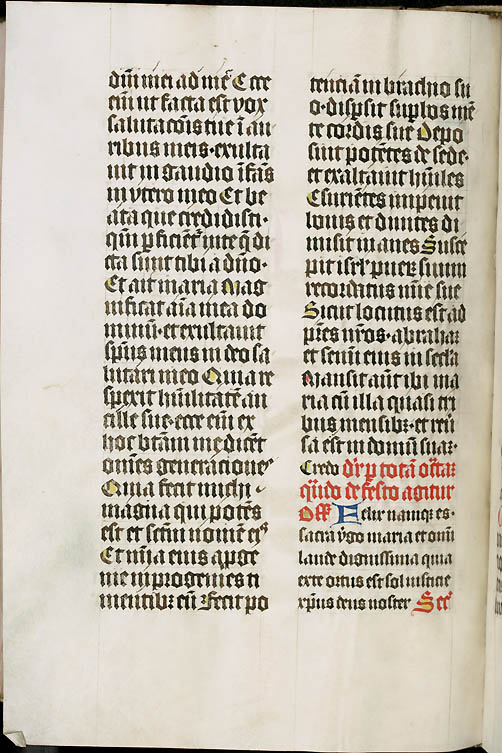 dn̄i mei ad me᷑ Ecce
eni᷑ ut facta est vox
salutacōis tue ī au
ribus meis·exulta
uit in gaudio īfās
in vtero meo Et be
ata que credidisti·
qm̄ ꝑficient᷑ inte q̄ di
cta sunt tibi a dn̄o·
Et ait maria Mag
nificat aīa mea do
minū·et exultauit
sp̄us meus in deo sa
lutari meo Quia re
spexit humilitatē an
cille sue·ecce eni᷑ ex
hoc btām me dicēt
om̄es generationes
Quia fecit michi
magna qui potēs
est et sc̄m nomē eiꝰ
Et mīa eius a ꝓge
nie in progenies ti
mentibꝫ eū Fecit po
tenciam in brachio su
o·disꝑsit suꝑbos mē
te cordis sui Depo
suit potētes de sede·
et exaltauit hūiles
Esurientes impleuit
bonis et diuites di
misit inanes Susce
pit isrl̄ pueꝝ suum
recordatus mīe sue
Sicut locutus est ad
pr̄es nr̄os·abrahaꝫ
et semī eius in secla
Mansit aūt ibi ma
ria cū illa quasi tri
bus mensibꝫ·et reu᷑
sa est in domū suaꝫ·
Credo dr̄ ꝑ totā octaꝫ
qn̄do de festo agitur
Off̄ Felix namqꝫ es·
sacra v̄go maria et omī
laude dignissima quia
ex te ortus est sol iusticie
xp̄us deus noster Sec̄